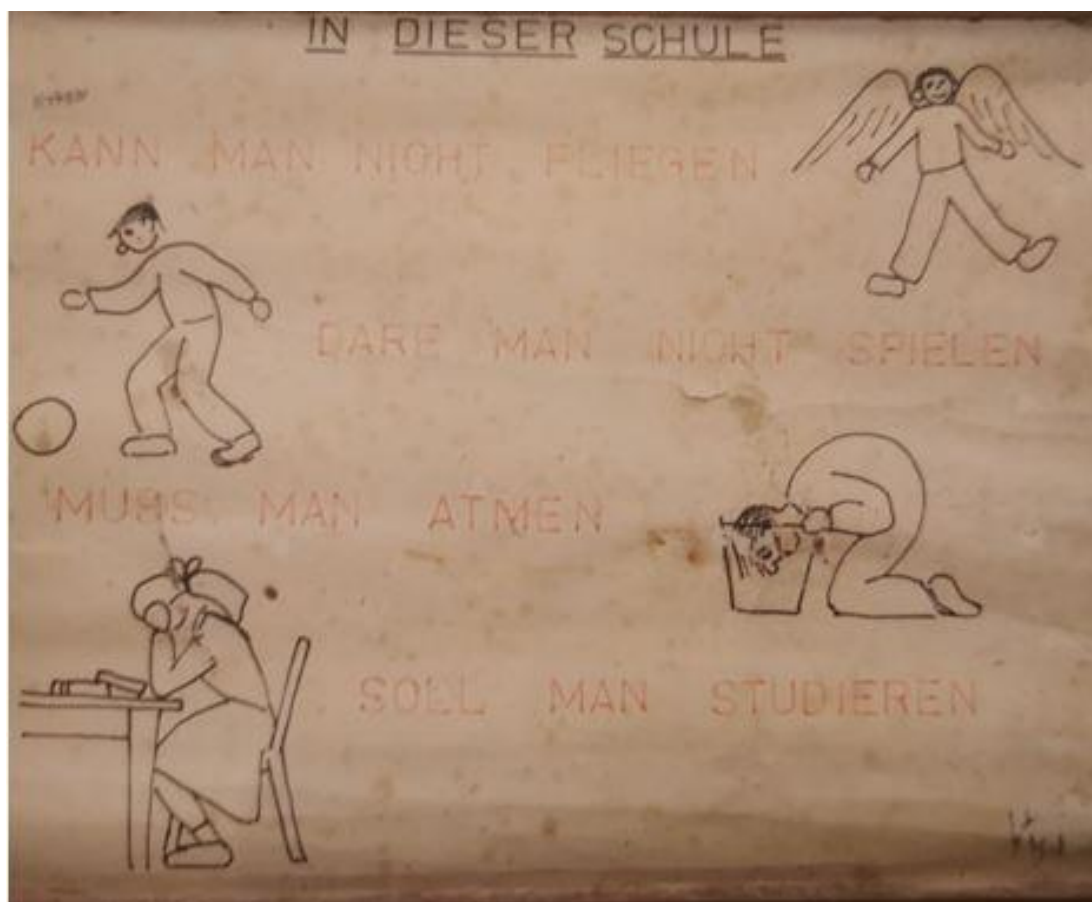 IN DIESER SCHULE
KANN MAN NICHT FLIEGEN
DARF MAN NICHT SPIELEN
MUSS MAN ATMEN
SOLL MAN STUDIEREN